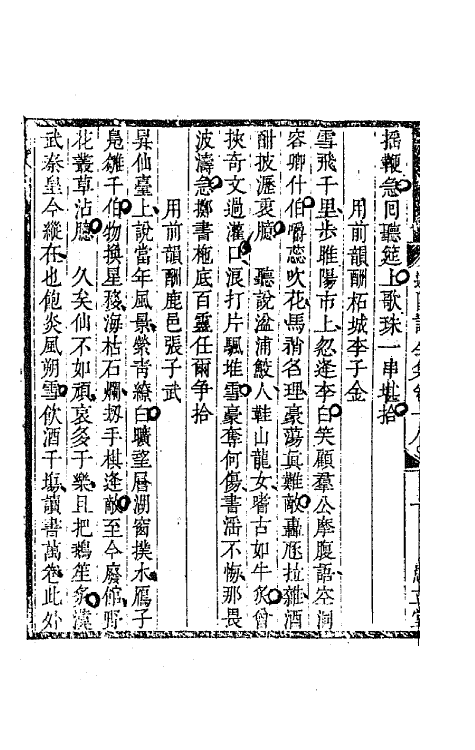 搖鞭急回聽筵上歌珠一串堪拾
用前韻酬柘城李子金
雪飛千里步雎陽市上忽逢李白笑顧羣公摩腹語空洞
容卿什伯嚼蕊吹花馬矟名理豪蕩眞難敵轟飈拉雜酒
酣披瀝衷臆　聽說湓浦鮫人鞋山龍女嗜古如牛炙曾
挾奇文過灌口浪打片颿堆雪豪奪何傷書溼不悔那畏
波濤急擲書柂底百靈任爾争拾
用前韻酬鹿邑張子武
昇仙臺上說當年風景縈青繚白曠望層湖窗撲水鴈子
鳧雛千伯物換星移海枯石爛拐手棋逢敵至今廢館野
花叢草沾臆　久矣仙不如頑哀多于樂且把鵝笙炙漢
武秦皇今縱在也飽炎風朔雪飲酒千塲讀書萬卷此外